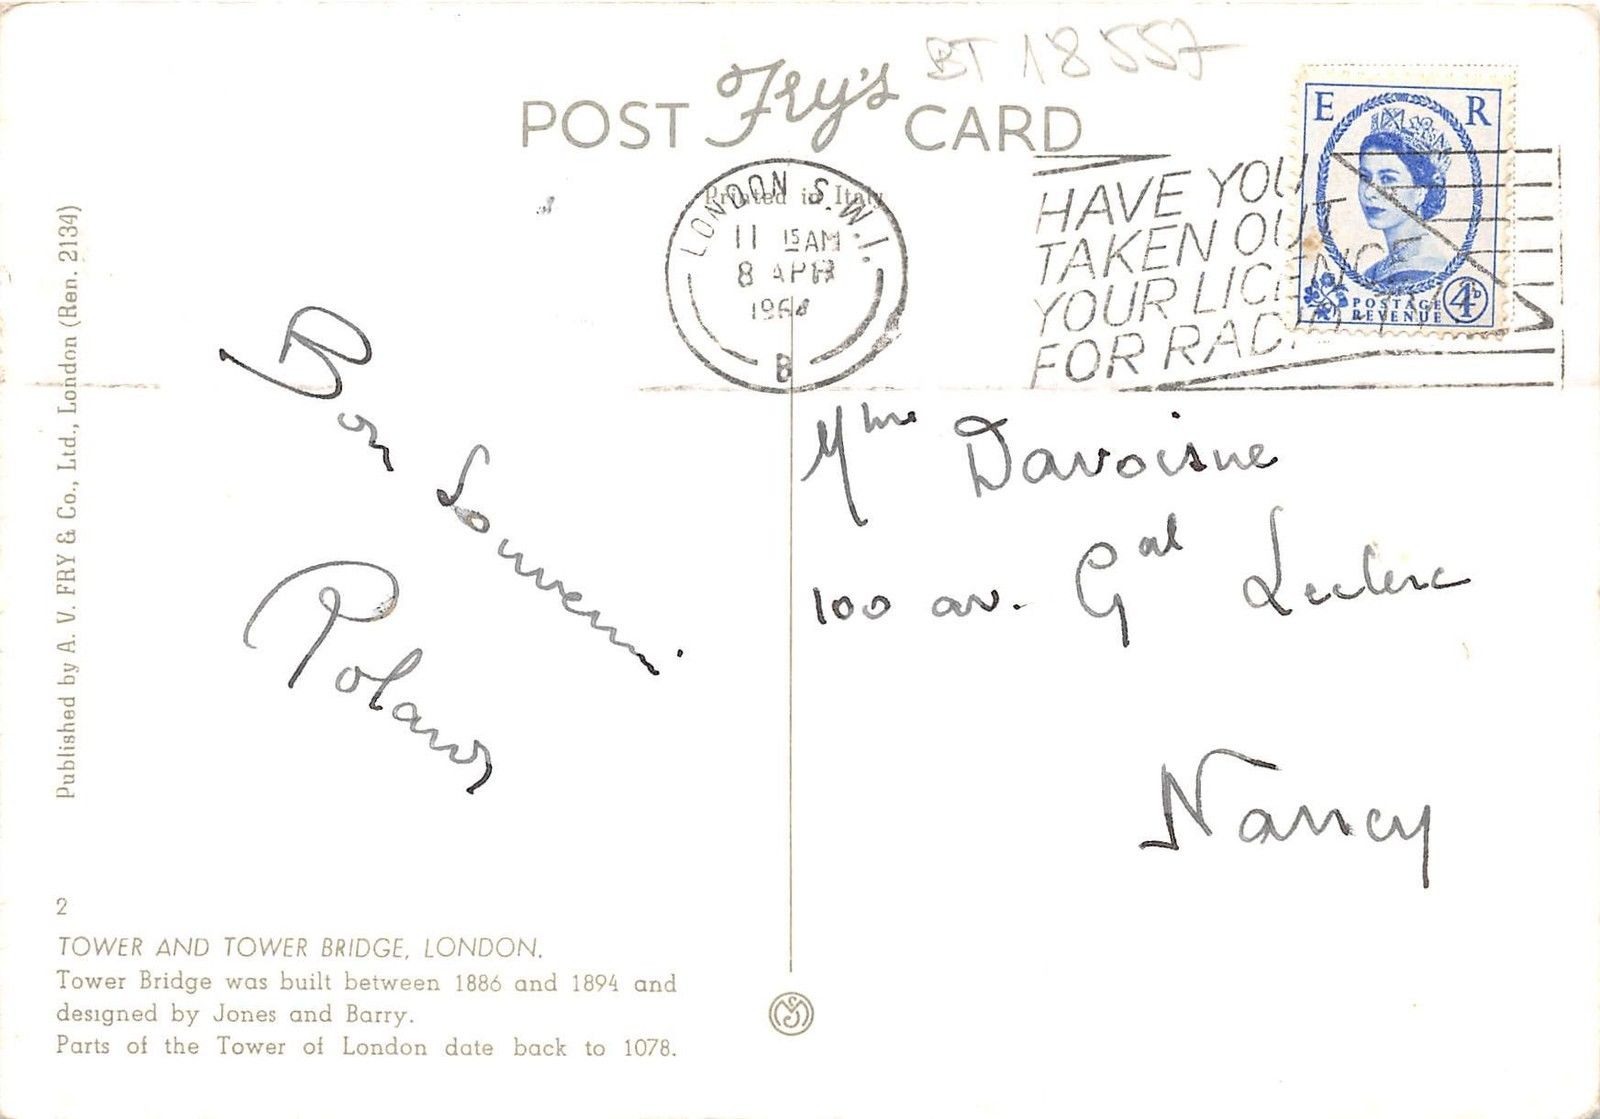 BT 18557
POST Fry's CARD
Printed in Italy
LONDON S.W.1.
11 15 AM
8 APR
1964
B
HAVE YOU
TAKEN OUT
YOUR LICENCE
FOR RADIO
E R
POSTAGE
REVENUE
4½D
Published by A. V. FRY & Co., Ltd., London (Ren. 2134)
Bon Souvenir.
Roland
Mme Davoisne
100 av. Gal Leclerc
Nancy
2
TOWER AND TOWER BRIDGE, LONDON.
Tower Bridge was built between 1886 and 1894 and
designed by Jones and Barry.
Parts of the Tower of London date back to 1078.